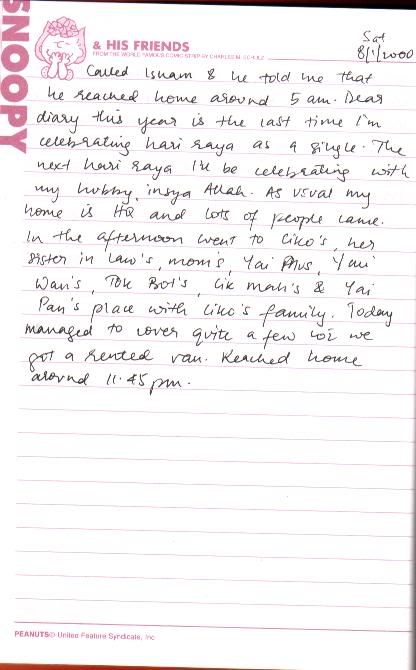 SNOOPY
& HIS FRIENDS
FROM THE WORLD FAMOUS COMIC STRIP BY CHARLES M. SCHULZ
Sat
8/1/2000
Called Isham & he told me that
he reached home around 5 am. Dear
diary this year is the last time I'm
celebrating hari raya as a single. The
next hari raya I'll be celebrating with
my hubby, insya Allah. As usual my
home is HQ and lots of people came.
In the afternoon went to Ciko's, her
sister in law's, mom's, Yai Plus, Yai
Wan's, Tok Bot's, Cik Mah's & Yai
Pan's place with Ciko's family. Today
managed to cover quite a few coz we
got a rented van. Reached home
around 11.45 pm.
PEANUTS© United Feature Syndicate, Inc